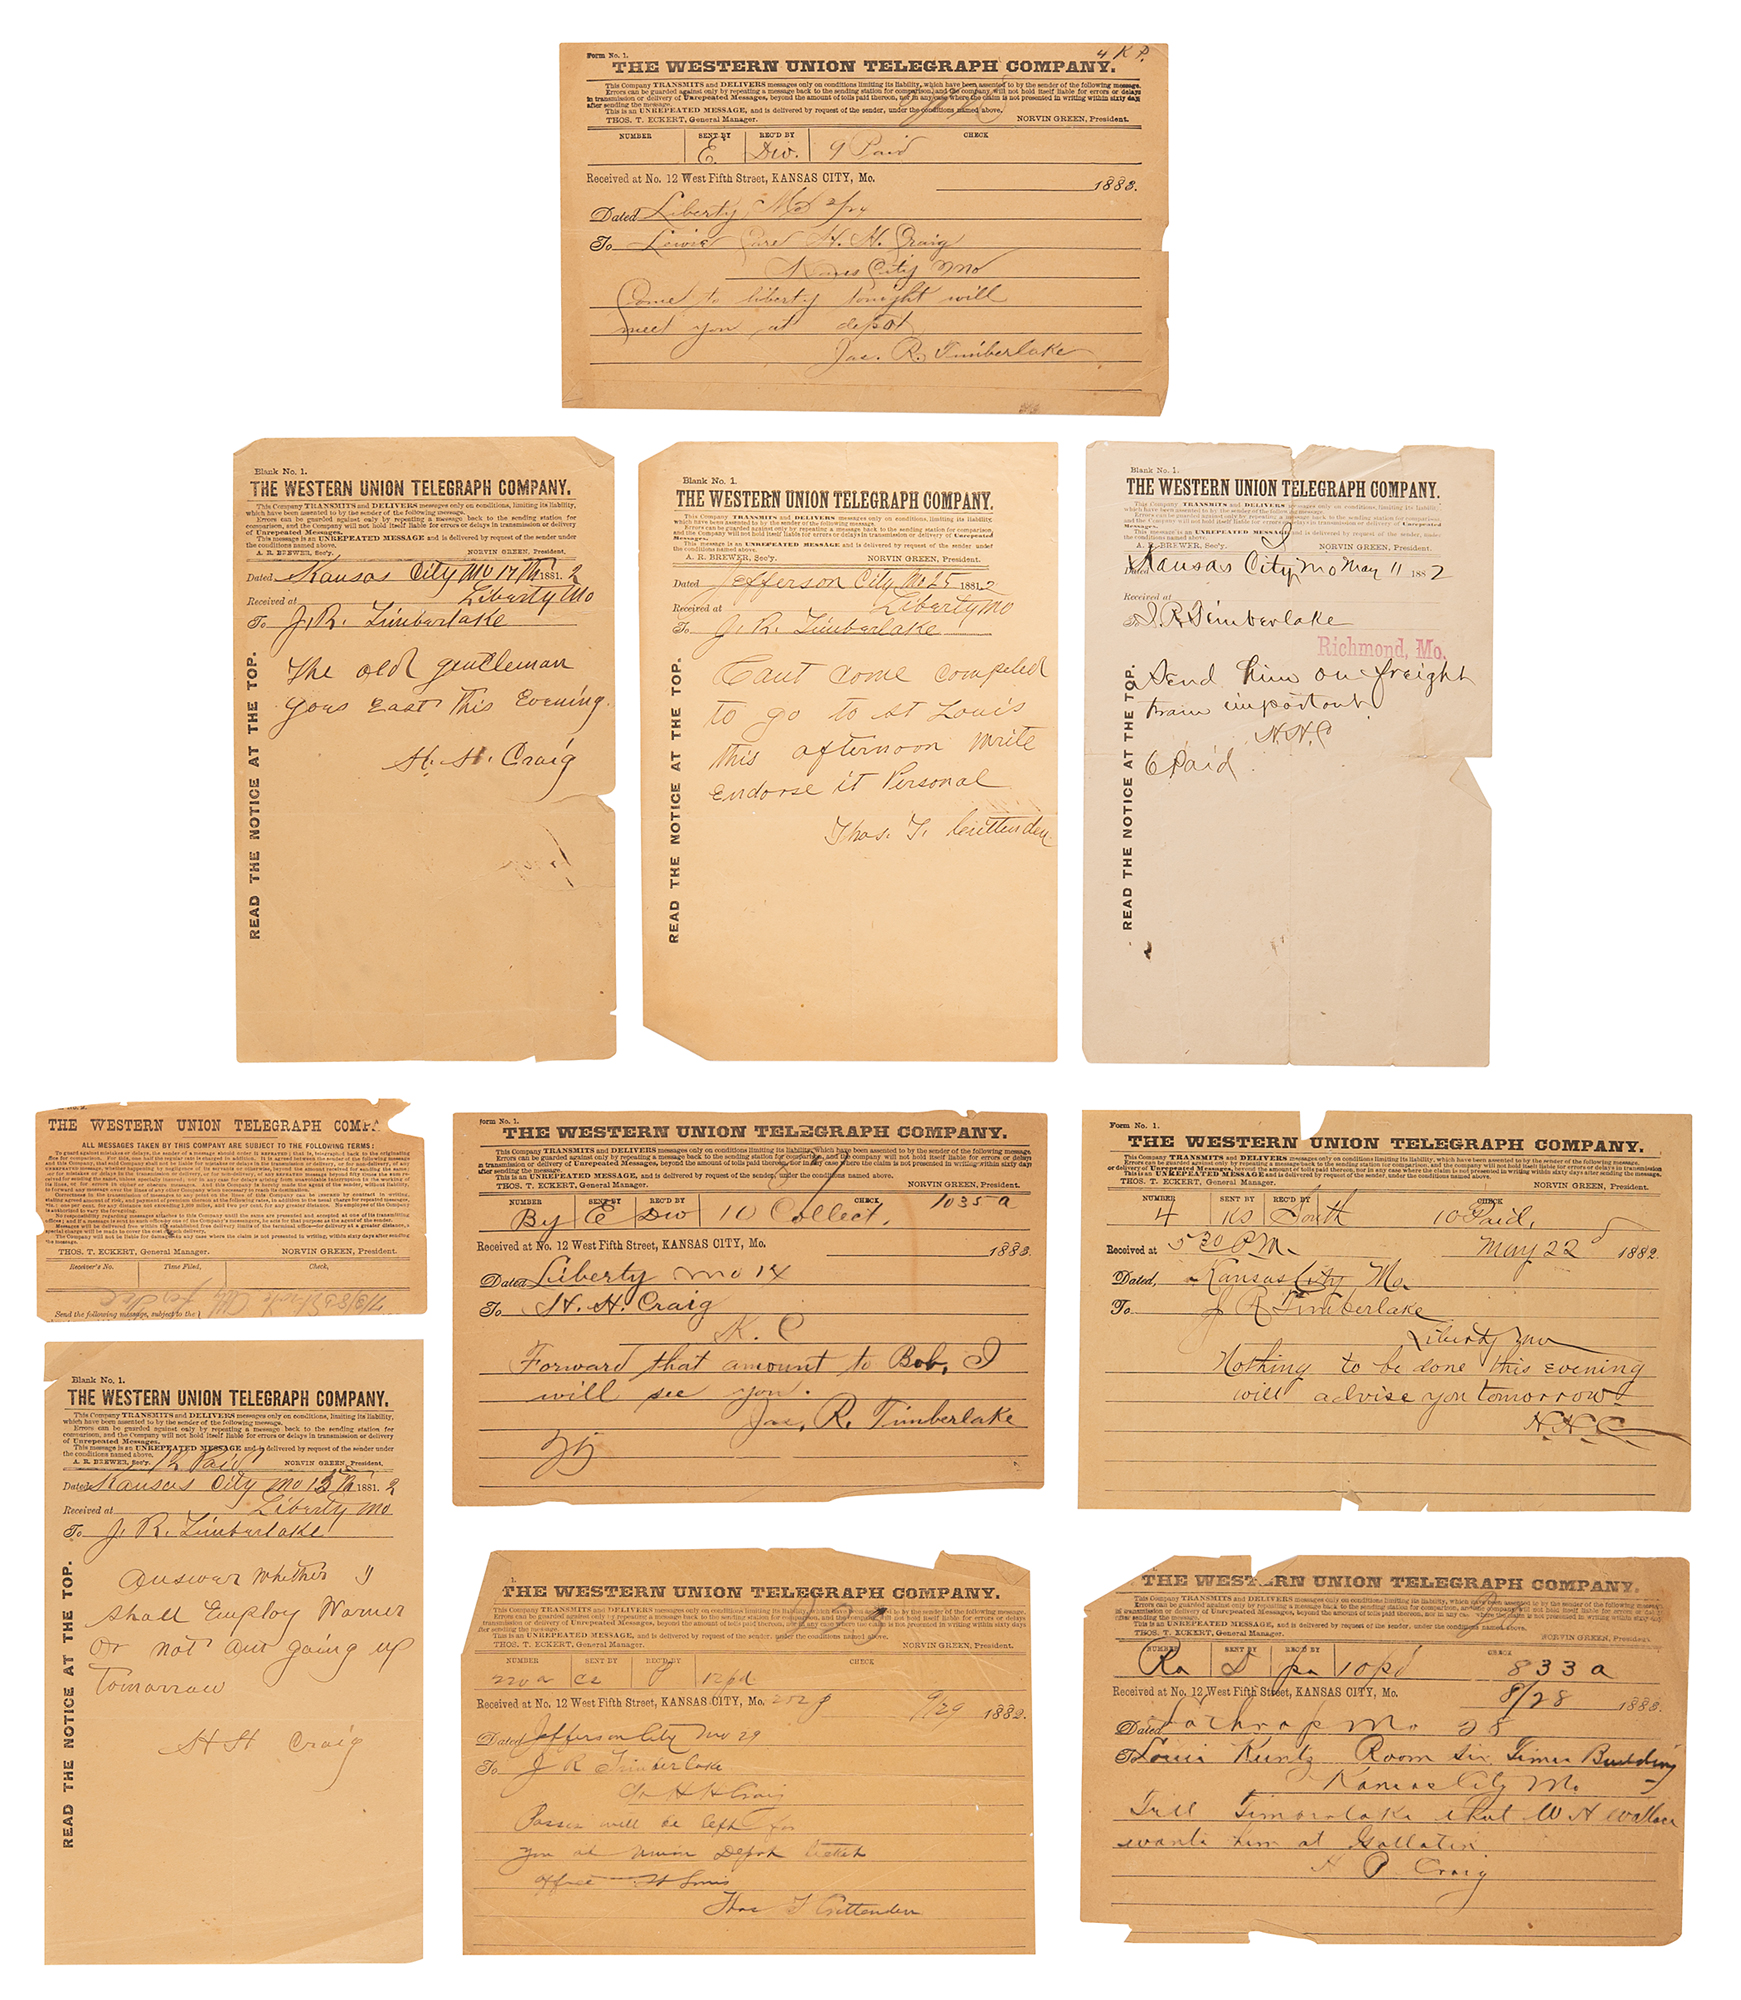 4 K P.
Form No. 1.
THE WESTERN UNION TELEGRAPH COMPANY.
This Company TRANSMITS and DELIVERS messages only on conditions limiting its liability, which have been assented to by the sender of the following message.
Errors can be guarded against only by repeating a message back to the sending station for comparison, and the company will not hold itself liable for errors or delays
in transmission or delivery of Unrepeated Messages, beyond the amount of tolls paid thereon, nor in any case where the claim is not presented in writing within sixty days
after sending the message.
This is an UNREPEATED MESSAGE, and is delivered by request of the sender, under the conditions named above.
THOS. T. ECKERT, General Manager. NORVIN GREEN, President.
NUMBER SENT BY REC'D BY CHECK
E Div. 9 Paid
Received at No. 12 West Fifth Street, KANSAS CITY, Mo. 1883.
Dated Liberty Mo 2/24
To Lewis Care H. H. Craig
Kans City Mo
Come to liberty tonight will
meet you at depot
Jas. R. Timberlake
Blank No. 1.
THE WESTERN UNION TELEGRAPH COMPANY.
This Company TRANSMITS and DELIVERS messages only on conditions limiting its liability,
which have been assented to by the sender of the following message.
Errors can be guarded against only by repeating a message back to the sending station for
comparison, and the Company will not hold itself liable for errors or delays in transmission or delivery
of Unrepeated Messages.
This message is an UNREPEATED MESSAGE and is delivered by request of the sender under
the conditions named above.
A. R. BREWER, Sec'y. NORVIN GREEN, President.
Dated Kansas City Mo 17th 1881. 2
Received at Liberty Mo
To J. R. Timberlake
The old gentleman
goes East this Evening.
H. H. Craig
READ THE NOTICE AT THE TOP.
Blank No. 1.
THE WESTERN UNION TELEGRAPH COMPANY.
This Company TRANSMITS and DELIVERS messages only on conditions, limiting its liability,
which have been assented to by the sender of the following message.
Errors can be guarded against only by repeating a message back to the sending station for comparison,
and the Company will not hold itself liable for errors or delays in transmission or delivery of Unrepeated
Messages.
This message is an UNREPEATED MESSAGE and is delivered by request of the sender under
the conditions named above.
A. R. BREWER, Sec'y. NORVIN GREEN, President.
Dated Jefferson City Mo 25 1881. 2
Received at Liberty Mo
To J. R. Timberlake
Cant come compeled
to go to St Louis
this afternoon write
Endorse it Personal
Thos. T. Crittenden
READ THE NOTICE AT THE TOP.
Blank No. 1.
THE WESTERN UNION TELEGRAPH COMPANY.
This Company TRANSMITS and DELIVERS messages only on conditions, limiting its liability,
which have been assented to by the sender of the following message.
Errors can be guarded against only by repeating a message back to the sending station for comparison,
and the Company will not hold itself liable for errors or delays in transmission or delivery of Unrepeated
Messages.
This message is an UNREPEATED MESSAGE and is delivered by request of the sender, under
the conditions named above.
A. R. BREWER, Sec'y. NORVIN GREEN, President.
Dated Kansas City, Mo May 11 1882
Received at
To J. R. Timberlake
Richmond, Mo.
Send him on freight
train important
H. H. C
6 Paid
READ THE NOTICE AT THE TOP.
THE WESTERN UNION TELEGRAPH COMPA
ALL MESSAGES TAKEN BY THIS COMPANY ARE SUBJECT TO THE FOLLOWING TERMS:
THOS. T. ECKERT, General Manager. NORVIN GREEN, President.
Receiver's No. Time Filed, Check,
Send the following message, subject to the
Form No. 1.
THE WESTERN UNION TELEGRAPH COMPANY.
This Company TRANSMITS and DELIVERS messages only on conditions limiting its liability, which have been assented to by the sender of the following message.
Errors can be guarded against only by repeating a message back to the sending station for comparison, and the company will not hold itself liable for errors or delays
in transmission or delivery of Unrepeated Messages, beyond the amount of tolls paid thereon, nor in any case where the claim is not presented in writing within sixty days
after sending the message.
This is an UNREPEATED MESSAGE, and is delivered by request of the sender, under the conditions named above.
THOS. T. ECKERT, General Manager. NORVIN GREEN, President.
NUMBER SENT BY REC'D BY CHECK
By E Div 10 Collect. 1035 a
Received at No. 12 West Fifth Street, KANSAS CITY, Mo. 1883.
Dated Liberty Mo 14
To H. H. Craig
K. C
Forward that amount to Bob, I
will see you.
Jas. R. Timberlake
Form No. 1.
THE WESTERN UNION TELEGRAPH COMPANY.
This Company TRANSMITS and DELIVERS messages only on conditions limiting its liability, which have been assented to by the sender of the following message.
Errors can be guarded against only by repeating a message back to the sending station for comparison, and the company will not hold itself liable for errors or delays in transmission
or delivery of Unrepeated Messages, beyond the amount of tolls paid thereon, nor in any case where the claim is not presented in writing within sixty days after sending the message.
This is an UNREPEATED MESSAGE, and is delivered by request of the sender, under the conditions named above.
THOS. T. ECKERT, General Manager. NORVIN GREEN, President.
NUMBER SENT BY REC'D BY CHECK
4 Ks South 10 Paid.
Received at 5 30 P.M. May 22 1882.
Dated, Kansas City Mo.
To J R Timberlake
Liberty Mo
Nothing to be done this evening
will advise you tomorrow
H. H. C
Blank No. 1.
THE WESTERN UNION TELEGRAPH COMPANY.
This Company TRANSMITS and DELIVERS messages only on conditions, limiting its liability,
which have been assented to by the sender of the following message.
Errors can be guarded against only by repeating a message back to the sending station for
comparison, and the Company will not hold itself liable for errors or delays in transmission or delivery
of Unrepeated Messages.
This message is an UNREPEATED MESSAGE and is delivered by request of the sender under
the conditions named above.
A. R. BREWER, Sec'y. 12 Paid NORVIN GREEN, President.
Dated Kansas City Mo 13th 1881. 2
Received at Liberty Mo
To J. R. Timberlake
Answer whether I
shall Employ Warner
or not am going up
tomorrow
H H Craig
READ THE NOTICE AT THE TOP.
THE WESTERN UNION TELEGRAPH COMPANY.
This Company TRANSMITS and DELIVERS messages only on conditions limiting its liability, which have been assented to by the sender of the following message.
Errors can be guarded against only by repeating a message back to the sending station for comparison, and the company will not hold itself liable for errors or delays in
transmission or delivery of Unrepeated Messages, beyond the amount of tolls paid thereon, nor in any case where the claim is not presented in writing within sixty days
after sending the message.
This is an UNREPEATED MESSAGE, and is delivered by request of the sender, under the conditions named above.
THOS. T. ECKERT, General Manager. NORVIN GREEN, President.
NUMBER SENT BY REC'D BY CHECK
220 a Ce 12 pd
Received at No. 12 West Fifth Street, KANSAS CITY, Mo. 9/29 1882.
Dated Jefferson City Mo 29
To J R Timberlake
H H Craig
Passes will be left for
you at Union Depot ticket
office St Louis
Thos T Crittenden
THE WESTERN UNION TELEGRAPH COMPANY.
THOS. T. ECKERT, General Manager. NORVIN GREEN, President.
NUMBER SENT BY REC'D BY CHECK
Ra D pa 10 pd 833 a
Received at No. 12 West Fifth Street, KANSAS CITY, Mo. 8/28 1883.
Dated Lathrop Mo 28
To Louis Kuntz Room Six Times Building
Kansas City Mo
Tell Timberlake that W H Wallace
wants him at Gallatin
H P Craig